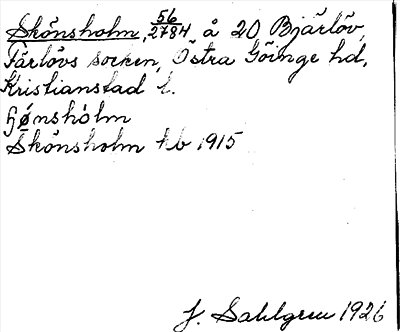 Skönsholm, 56/2784, å 20 Bjärlöv,
Färlövs socken, Östra Göinge hd,
Kristianstad l.
ʃjø̀nshòlm
Skönsholm kb 1915
J. Sahlgren 1926